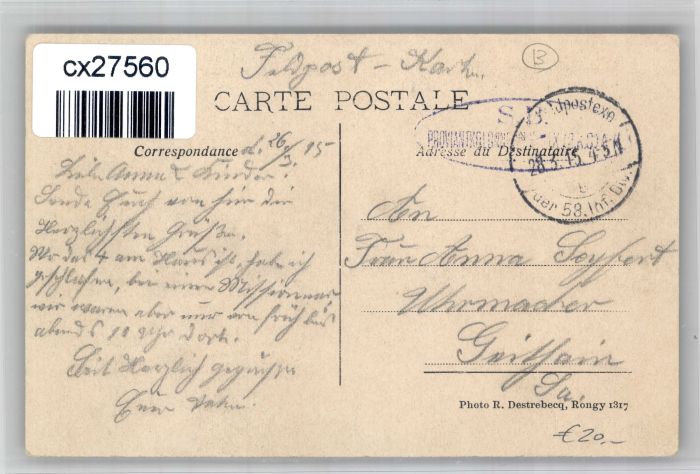 cx27560
Feldpost - Karte.
B
CARTE POSTALE
S.B.
Feldpostexp.
28.3.15. 4-5 N
der 58. Inf. Div.
Correspondance d. 26/3. 15
Adresse du Destinataire
Liebe Anna & Kinder!
Sende Euch von hier die
Herzlichsten Grüße.
Wo das 4 am Haus ist, habe ich
geschlafen, bei einem Missionar
wir waren aber nur von früh bis
abends 10 Uhr dort.
Seid Herzlich gegrüßt
Euer
An
Frau Anna Seyfert
Uhrmacher
Geithain
Sa.
Photo R. Destrebecq, Rongy 1317
€20.-